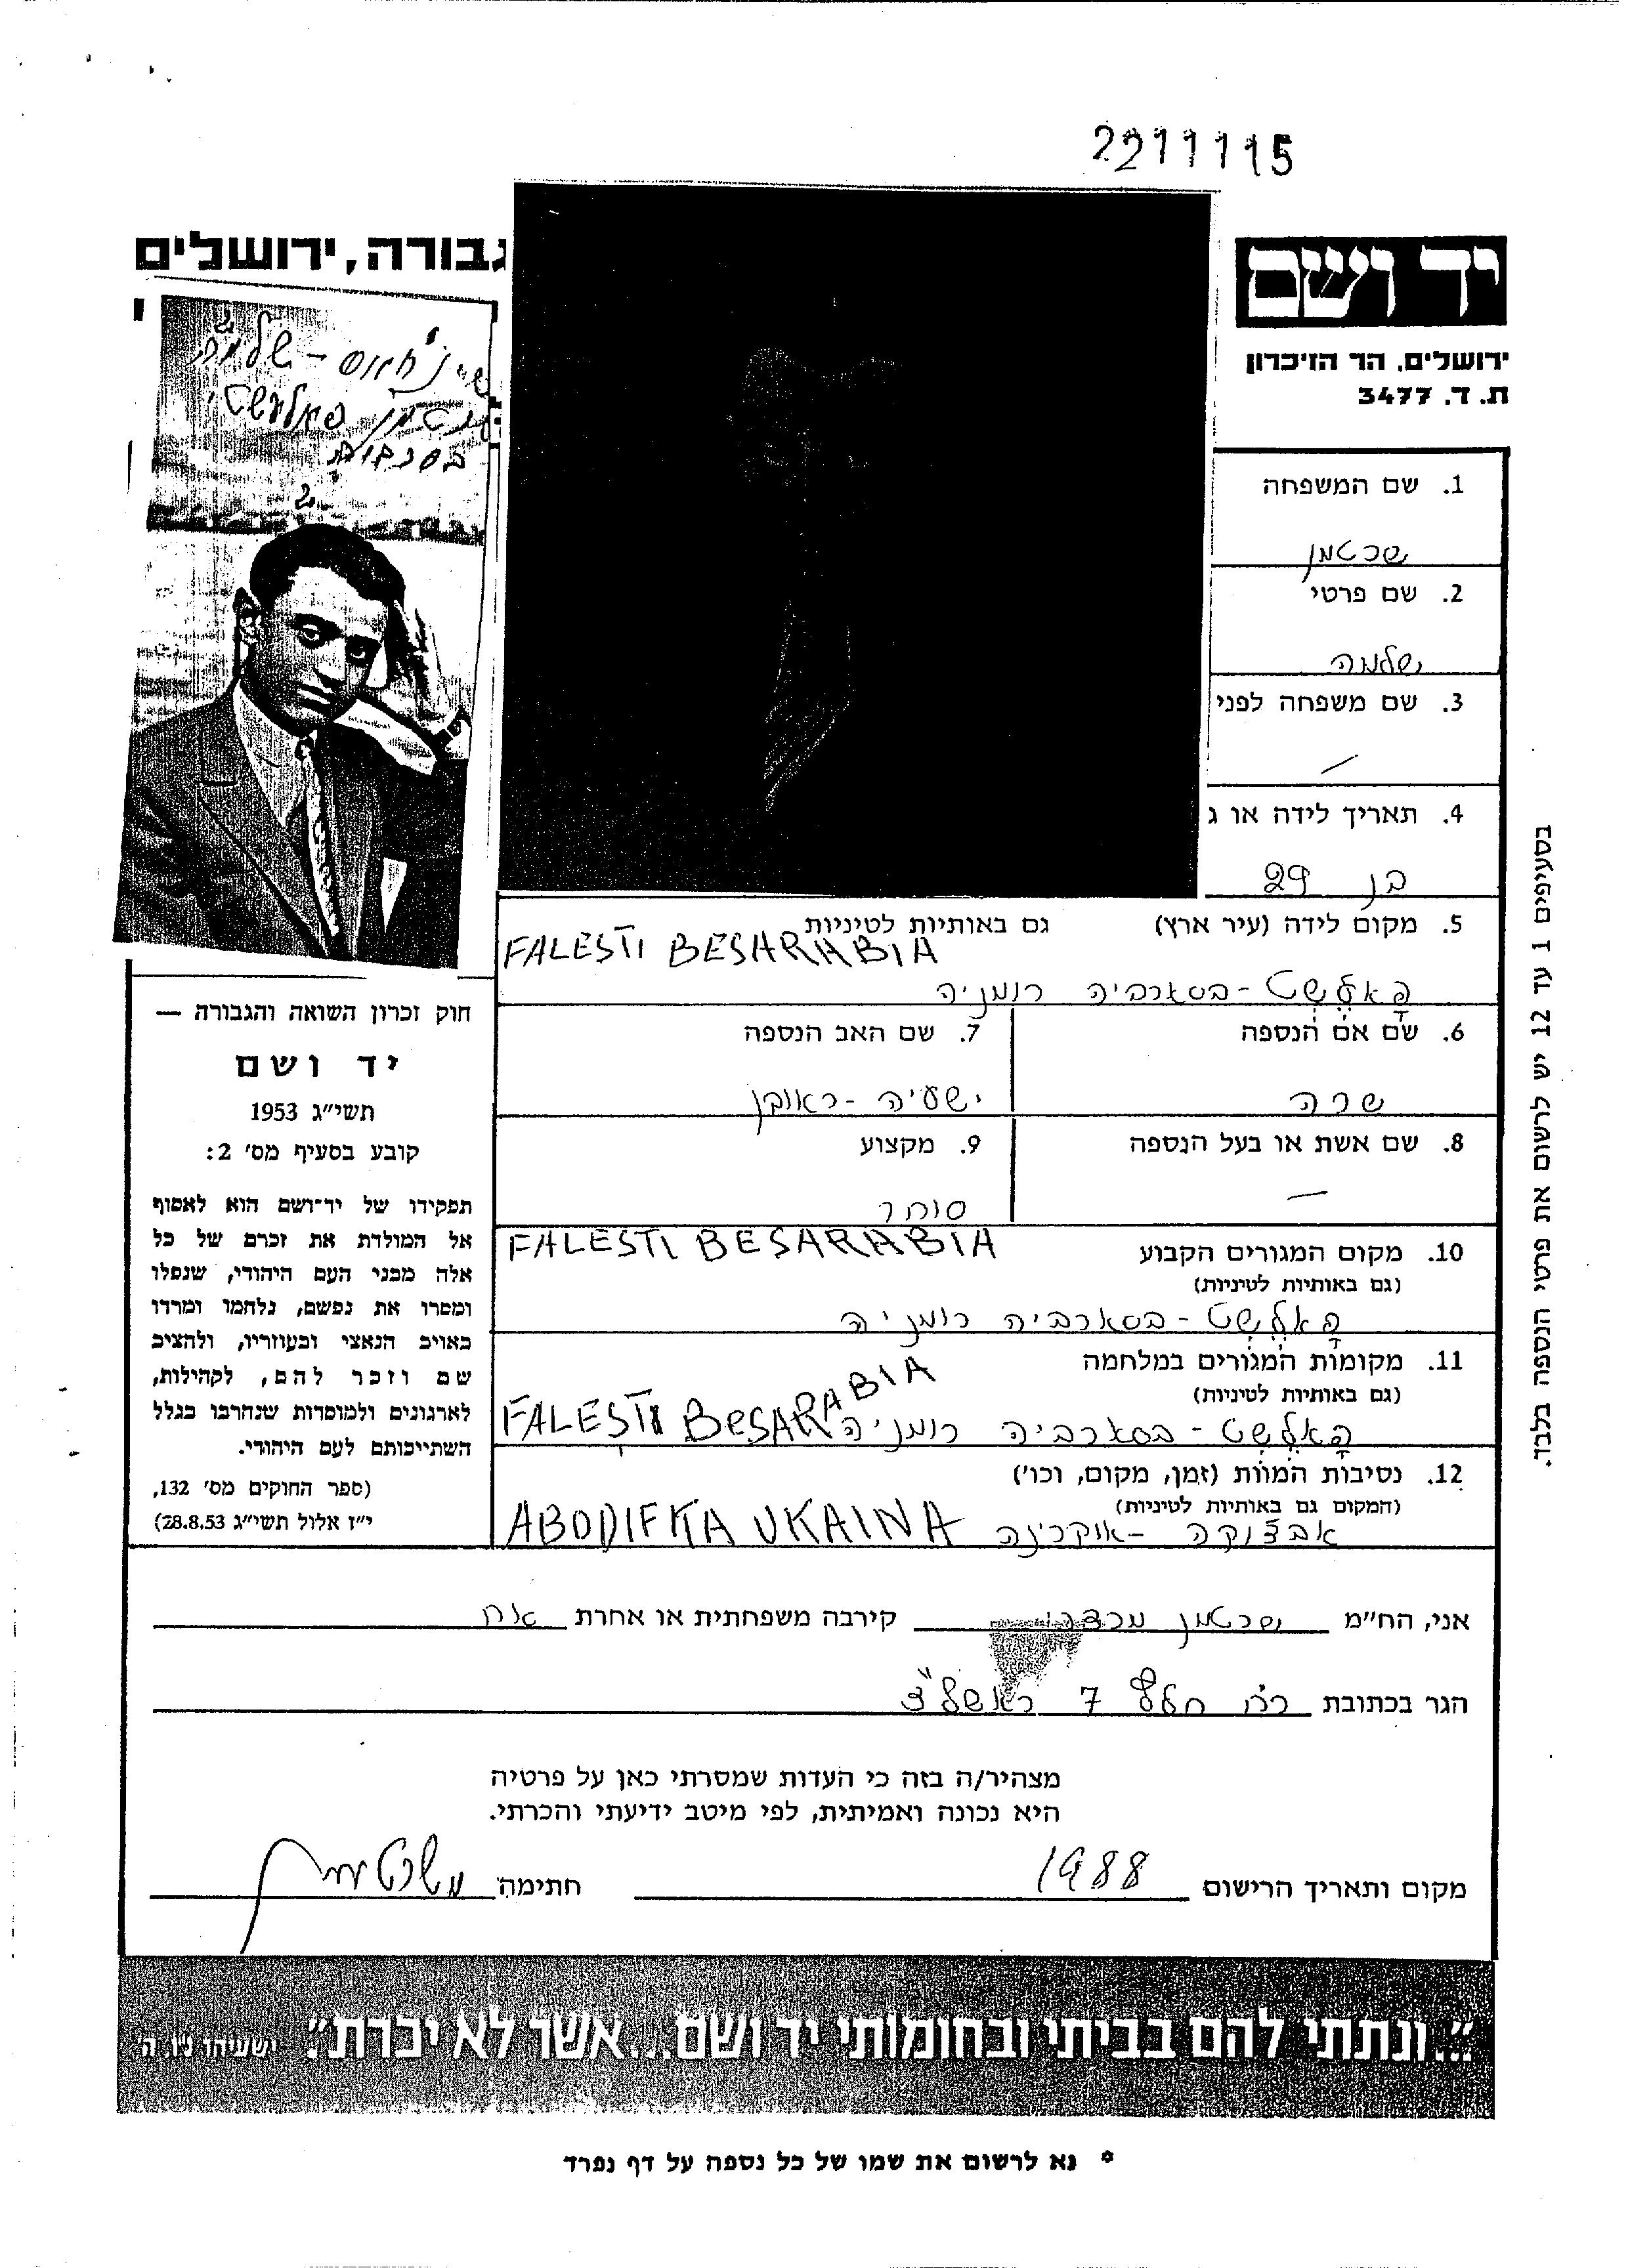 2211115
גבורה, ירושלים
יד ושם
ירושלים, הר הזיכרון
ת. ד. 3477
שלמה
פאלעשט
1. שם המשפחה
שרטמן
2. שם פרטי
שלמה
3. שם משפחה לפני
—
4. תאריך לידה או ג
בן 29
5. מקום לידה (עיר ארץ) גם באותיות לטיניות
FALESTI BESARABIA
פאלשט - בסארביה רומניה
6. שם אם הנספה
שרה
7. שם האב הנספה
ישעיה - ראובן
8. שם אשת או בעל הנספה
—
9. מקצוע
סוחר
10. מקום המגורים הקבוע
(גם באותיות לטיניות)
FALESTI BESARABIA
פאלשט - בסארביה רומניה
11. מקומות המגורים במלחמה
(גם באותיות לטיניות)
FALESTI BESARABIA
פאלשט - בסארביה רומניה
12. נסיבות המוות (זמן, מקום, וכו')
(המקום גם באותיות לטיניות)
ABODIFKA UKAINA
אוקרינה
בסעיפים 1 עד 12 יש לרשום את פרטי הנספה בלבד.
חוק זכרון השואה והגבורה —
יד ושם
תשי"ג 1953
קובע בסעיף מס' 2:
תפקידו של יד־ושם הוא לאסוף
אל המולדת את זכרם של כל
אלה מבני העם היהודי, שנפלו
ומסרו את נפשם, נלחמו ומרדו
באויב הנאצי ובעוזריו, ולהציב
שם וזכר להם, לקהילות,
לארגונים ולמוסדות שנחרבו בגלל
השתייכותם לעם היהודי.
(ספר החוקים מס' 132,
י"ז אלול תשי"ג 28.8.53)
אני, הח"מ שרטמן מרדכי קירבה משפחתית או אחרת אח
הגר בכתובת רח 7 ראשל"צ
מצהיר/ה בזה כי העדות שמסרתי כאן על פרטיה
היא נכונה ואמיתית, לפי מיטב ידיעתי והכרתי.
מקום ותאריך הרישום 1988 חתימה
"...ונתתי להם בביתי ובחומותי יד ושם...אשר לא יכרת". ישעיהו נ"ו, ה'
* נא לרשום את שמו של כל נספה על דף נפרד